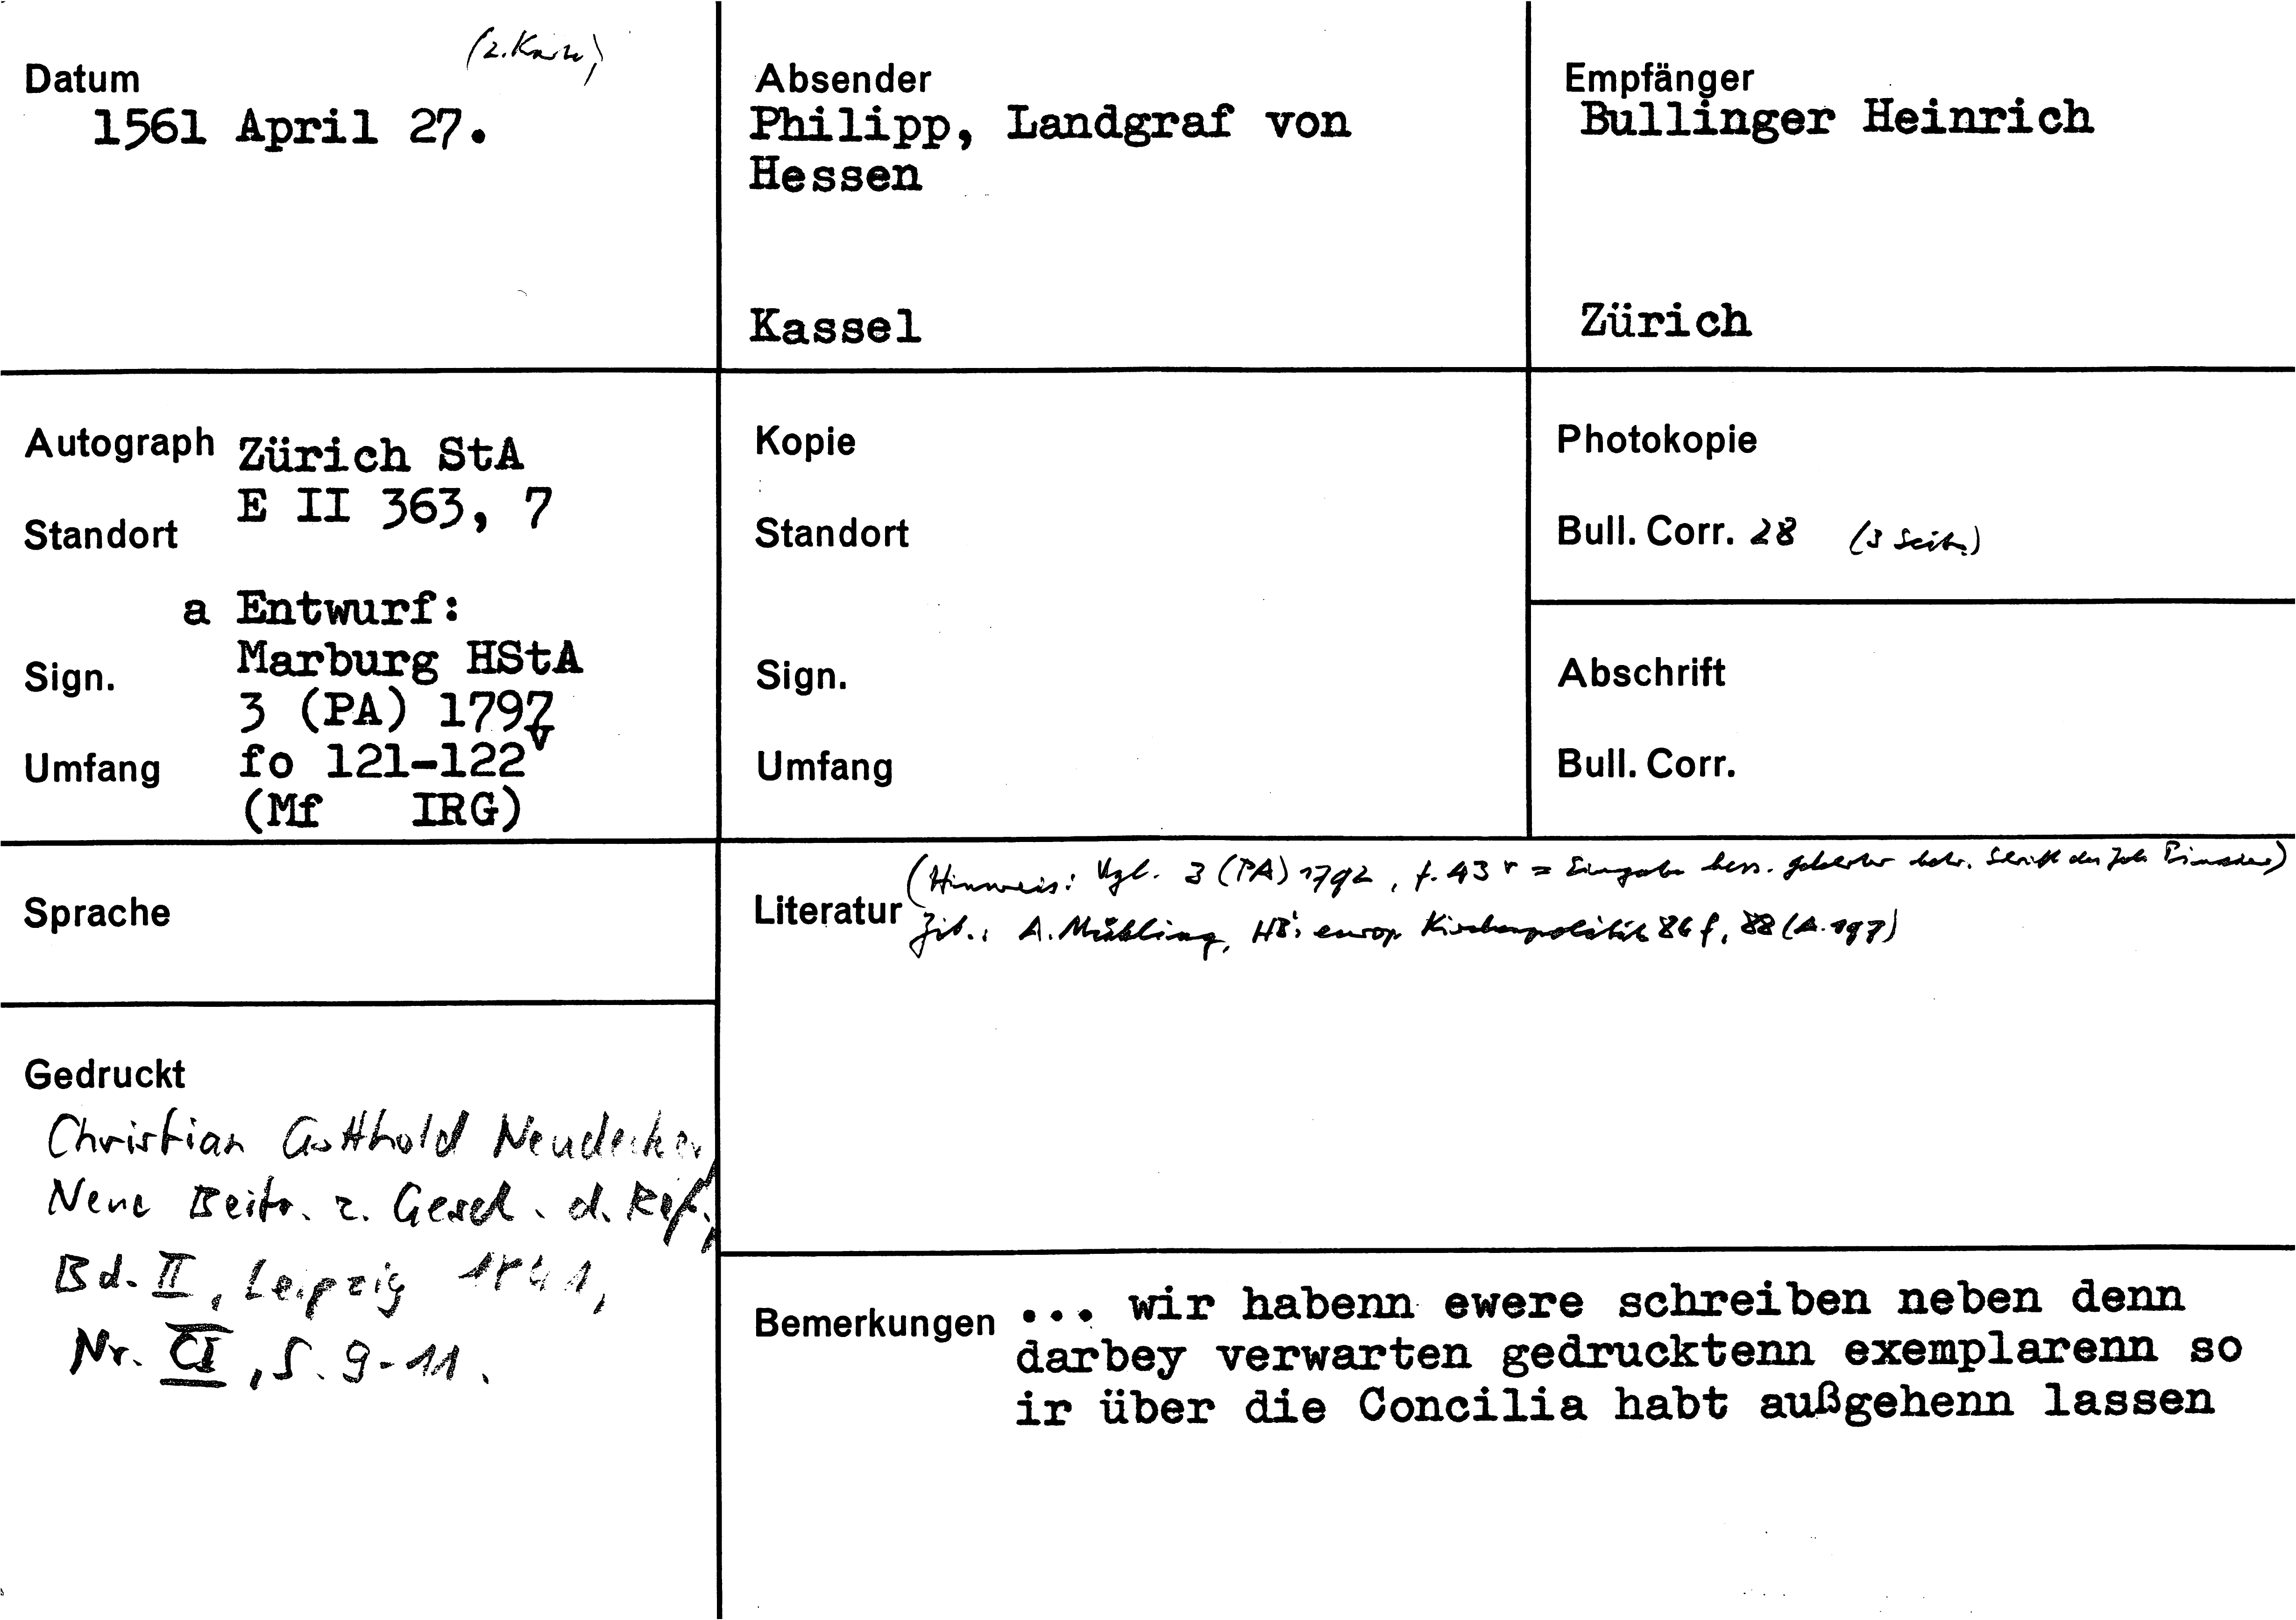 (2. Karte)
Datum
1561 April 27.
Absender
Philipp, Landgraf von
Hessen
Kassel
Empfänger
Bullinger Heinrich
Zürich
Autograph Zürich StA
E II 363, 7
Standort
a Entwurf:
Marburg HStA
Sign.
3 (PA) 1797
Umfang fo 121-122v
(Mf IRG)
Kopie
Standort
Sign.
Umfang
Photokopie
Bull. Corr. 28 (3 Seiten)
Abschrift
Bull. Corr.
Sprache
Literatur
(Hinweis: Vgl. 3 (PA) 1792, f. 43 r = Eingabe hess. gelehrter betr. Schrift des Joh
Zit.: A. Mühling, HB's europ. Kirchenpolitik 86 f, 88 (A. 197)
Gedruckt
Christian Gotthold Neudecker,
Neue Beitr. z. Gesch. d. Ref.,
Bd. II, Leipzig 1841,
Nr. CI, S. 9-11.
Bemerkungen ... wir habenn ewere schreiben neben denn
darbey verwarten gedrucktenn exemplarenn so
ir über die Concilia habt außgehenn lassen